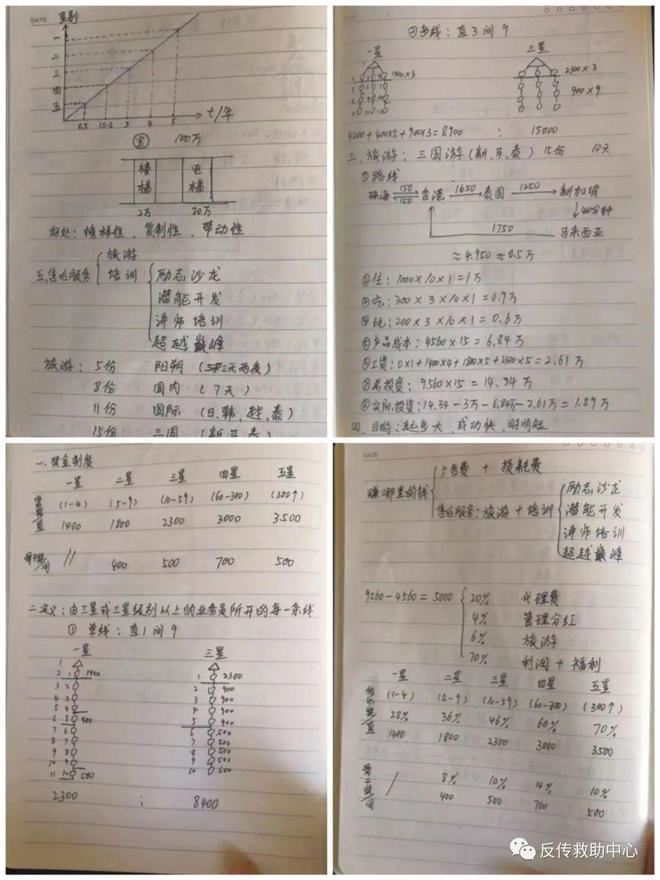 DATE
星别
一
二
三
四
五
0.5 1.5-2 3 4 5 t/年
100万
楼梯 电梯
2万 20万
好处：榜样性、复制性、带动性
五、售后服务 旅游
培训 励志沙龙
潜能开发
讲师培训
超越巅峰
旅游：5份 阳朔 (三天两夜)
8份 国内 (7天)
11份 国际 (日、韩、泰)
15份 三国 (新、马、泰)
直3间9
一星 三星
1400×3 2300×3
900×9
4200+400×5+900×3=8900 : 15000
三、旅游：三国游(新、马、泰) 15份 10天
①路线
珠海 150 150 香港 1650 泰国 1250 新加坡
↓40分钟
1750 马来西亚
≈4.950≈0.5万
②住：1000×10×1=1万
③吃：300×3×10×1=0.9万
④玩：200×3×10×1=0.6万
⑤产品成本：4560×15=6.84万
⑥工资：0×1+1400×4+1800×5+2300×5=2.61万
⑦总投资：9560×15=14.34万
⑧实际投资：14.34-3万-6.84万-2.61万=1.89万
四、目的：起步大、成功快、时间短
一、奖金制度
一星 二星 三星 四星 五星
(1-4) (5-9) (10-59) (60-300) (300↑)
1400 1800 2300 3000 3500
// 400 500 700 500
二、定义：由三星或三星级别以上的业务员所开的每一条线
① 单线：直1间9
一星 三星
1
2 1 1400 1 2300
3 2 2 900
4 3 3 900
5 4 4 900
6 5 400 5 900
7 6 6 500
8 7 7 500
9 8 8 500
10 9 9 500
11 10 500 10 500
2300 : 8400
DATE
赚哪里的钱 广告费 + 损耗费
售后服务：旅游 + 培训 励志沙龙
潜能开发
讲师培训
超越巅峰
9560-4560=5000 20% 代理费
4% 管理分红
6% 旅游
70% 利润+福利
一星 二星 三星 四星 五星
(1-4) (5-9) (10-59) (60-300) (300↑)
28% 36% 46% 60% 70%
1400 1800 2300 3000 3500
/ 8% 10% 14% 10%
400 500 700 500
反传救助中心